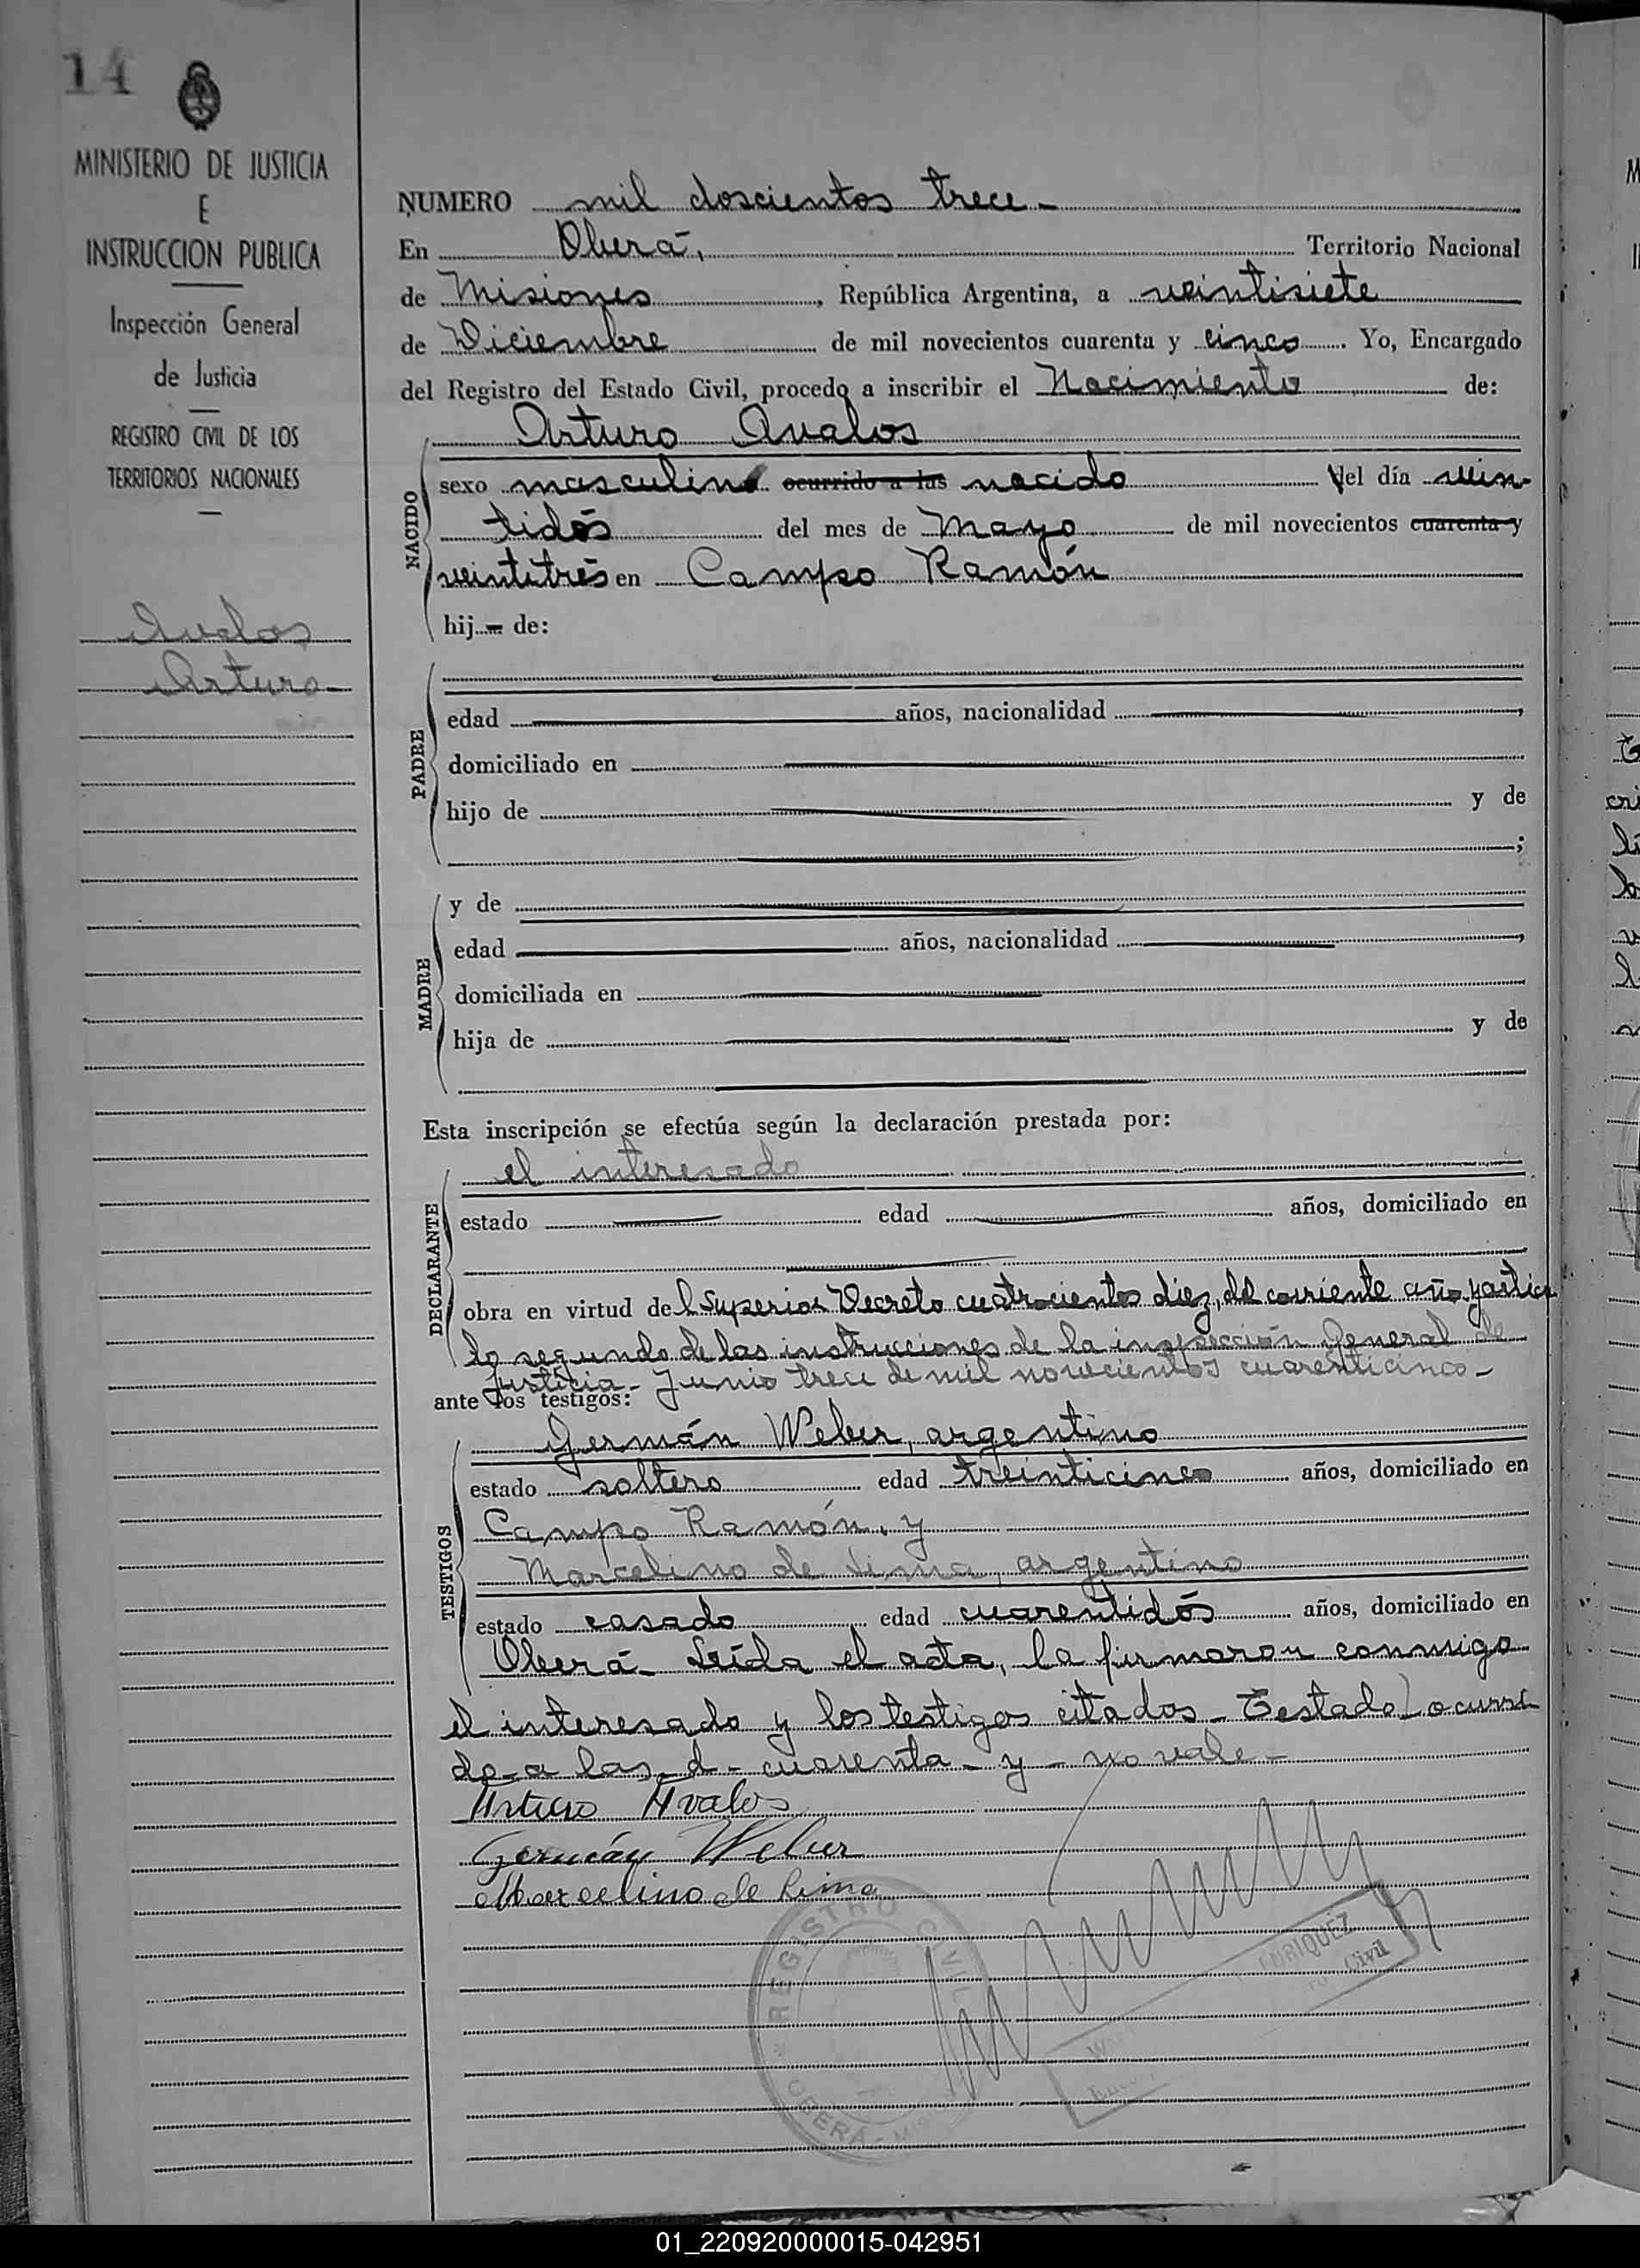 14
MINISTERIO DE JUSTICIA
E
INSTRUCCION PUBLICA
Inspección General
de Justicia
REGISTRO CIVIL DE LOS
TERRITORIOS NACIONALES
Avalos
Arturo
NUMERO mil doscientos trece
En Oberá, Territorio Nacional
de Misiones, República Argentina, a veintisiete
de Diciembre de mil novecientos cuarenta y cinco. Yo, Encargado
del Registro del Estado Civil, procedo a inscribir el Nacimiento de:
Arturo Avalos
NACIDO
sexo masculino ocurrido a las nacido del día vein-
tidós del mes de Mayo de mil novecientos cuarenta y
veintitrés en Campo Ramón
hij - de:
PADRE
edad años, nacionalidad ,
domiciliado en
hijo de y de
;
MADRE
y de
edad años, nacionalidad ,
domiciliada en
hija de y de
Esta inscripción se efectúa según la declaración prestada por:
DECLARANTE
el interesado
estado edad años, domiciliado en
obra en virtud del Superior Decreto cuatrocientos diez, del corriente año y artícu
lo segundo de las instrucciones de la inspección General de
Justicia - Junio trece de mil novecientos cuarenticinco -
ante los testigos:
TESTIGOS
Germán Weber, argentino
estado soltero edad treinticinco años, domiciliado en
Campo Ramón, y
Marcelino de Lima, argentino
estado casado edad cuarentidós años, domiciliado en
Oberá - Leída el acta, la firmaron conmigo
el interesado y los testigos citados - Testado) ocurri
do - a las - d - cuarenta - y - no vale -
Arturo Avalos
Germán Weber
Marcelino de Lima
REGISTRO CIVIL
OBERÁ - MIS
ENRIQUEZ
Civil
01_220920000015-042951